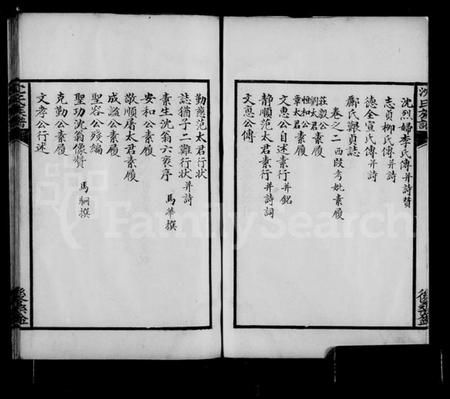 沈烈婦李氏傳并詩贊
志貞柳氏傳并詩
德全宣氏傳并詩
鄺氏鞭貞誌
卷之二西段考妣素履
莊毅公
劉太君素履
恒和公
章太君素履
文惠公自述素行并銘
靜順范太君素行并詩詞
文惠公傳
勤慈范太君行狀
誌猶子二難行狀并詩
素生沈翁六袠序 馬華撰
安和公素履
敬順屠太君素履
成謐公素履
聖容公殘編
聖功沈翁像贊 馬駉撰
克勤公素履
文孝公行述
FamilySearch